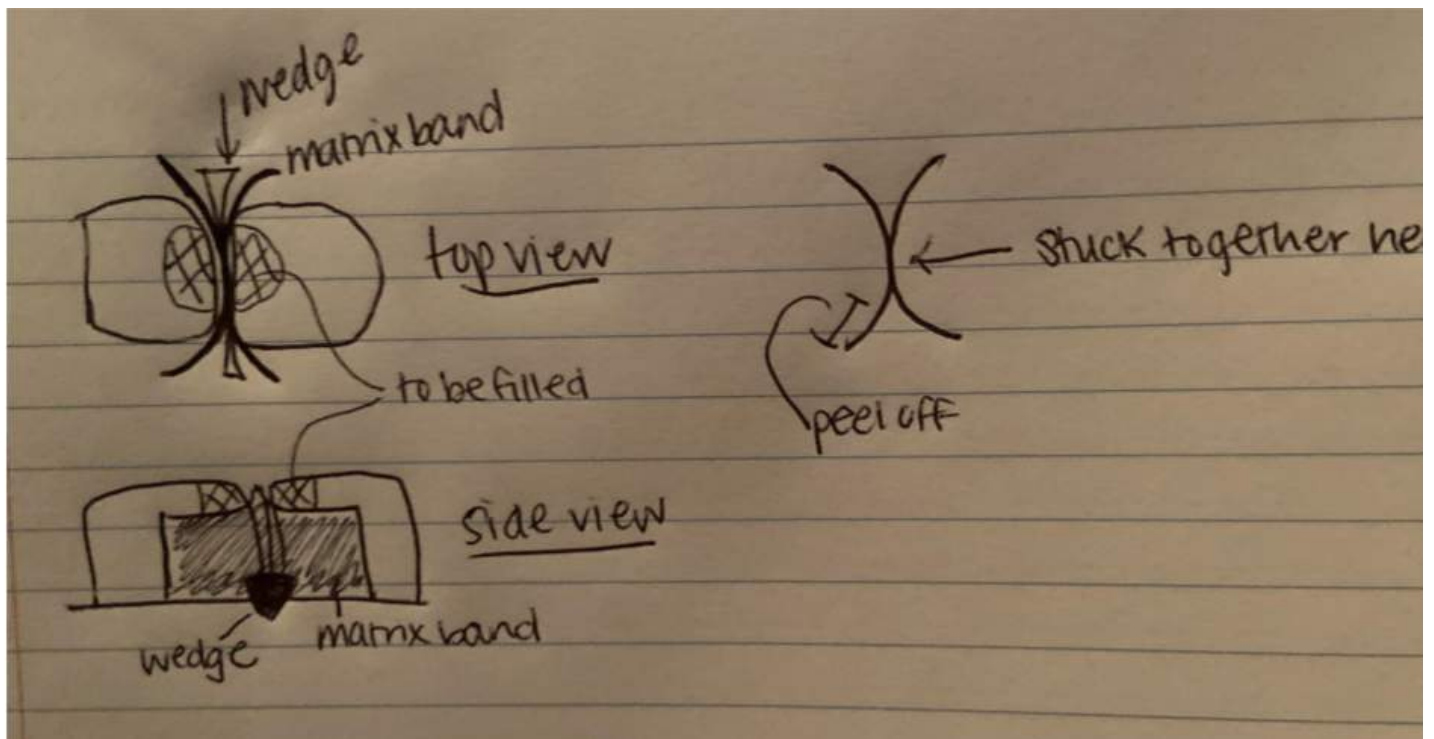 wedge
matrix band
top view
stuck together he
to be filled
peel off
side view
matrix band
wedge